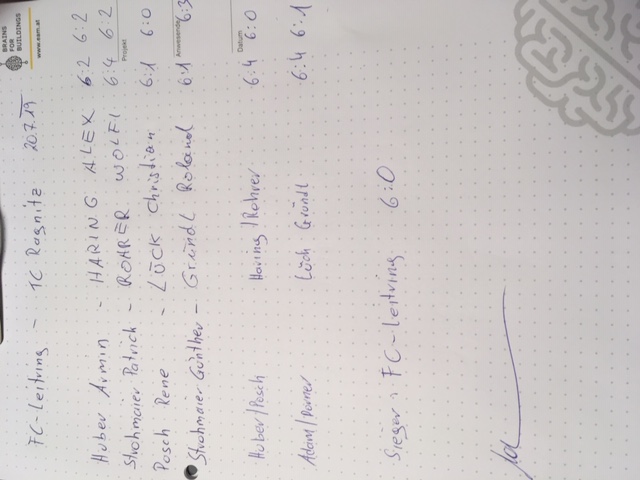 BRAINS
FOR
BUILDINGS
www.eam.at
Projekt
Anwesende
Datum
FC-Leitring - TC Ragnitz 20.7.19
Huber Armin - HARING ALEX 6:2 6:2
Strohmaier Patrick - ROHRER WOLFI 6:4 6:2
Posch Rene - LÜCK Christian 6:1 6:0
Strohmaier Günther - Gründl Roland 6:1 6:3
Huber/Posch Haring/Rohrer 6:4 6:0
Adam/ Lück Gründl 6:4 6:1
Sieger: FC-Leitring 6:0